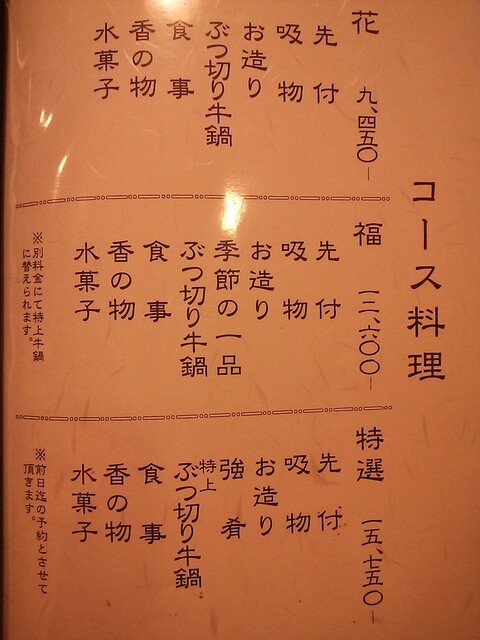 コース料理
花 九、四五〇―
先付
吸物
お造り
ぶつ切り牛鍋
食事
香の物
水菓子
福 一二、六〇〇―
先付
吸物
お造り
季節の一品
ぶつ切り牛鍋
食事
香の物
水菓子
※別料金にて特上牛鍋
に替えられます。
特選 一五、七五〇―
先付
吸物
お造り
強肴
特上
ぶつ切り牛鍋
食事
香の物
水菓子
※前日迄の予約とさせて
頂きます。